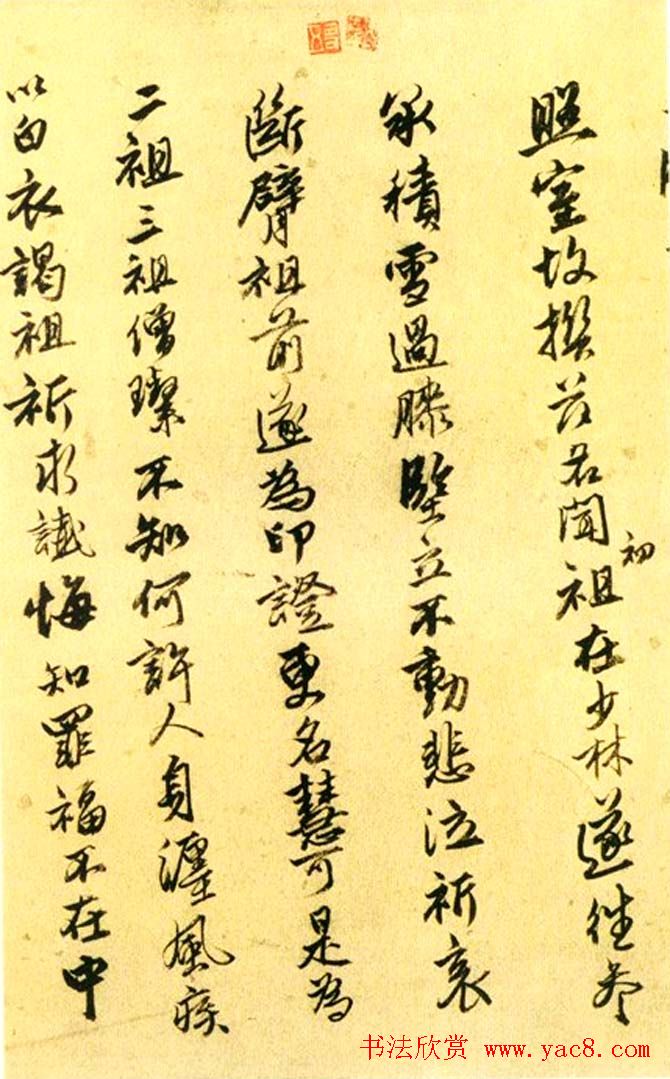 照室故撰茲名聞初祖在少林遂往參
承積雪過膝堅立不動悲泣祈哀
斷臂祖前遂為印證更名慧可是為
二祖三祖僧璨不知何許人身纏風疾
以白衣謁祖祈求懺悔知罪福不在中
书法欣赏 www.yac8.com